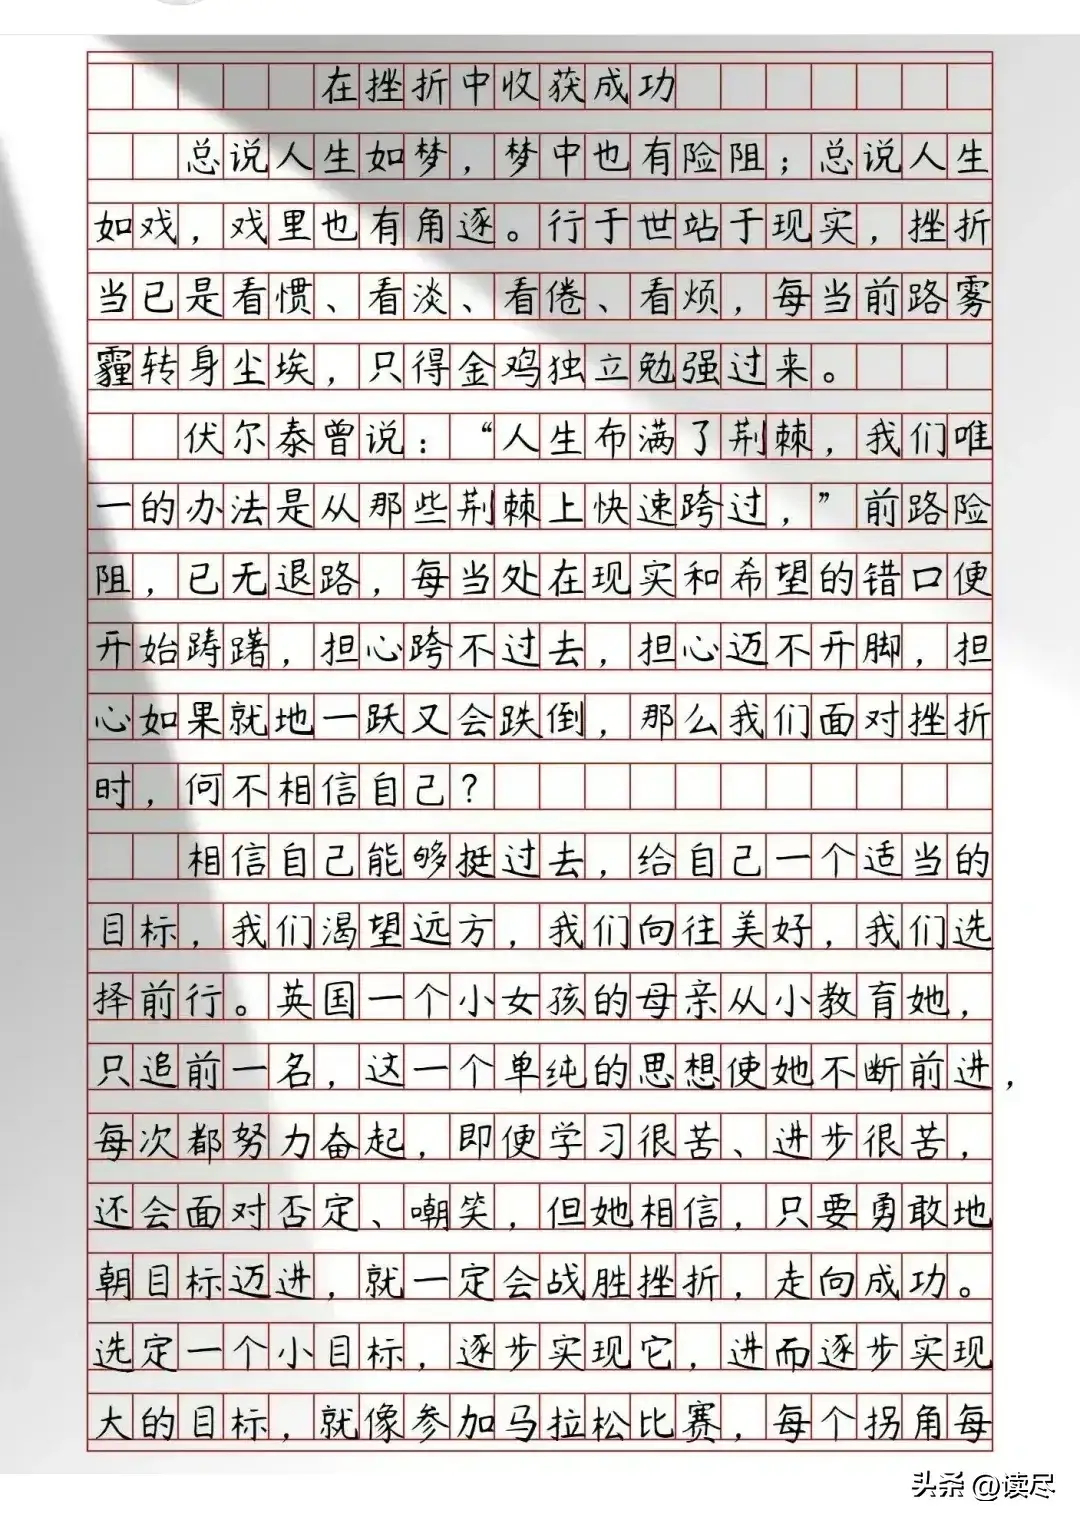 在挫折中收获成功
总说人生如梦，梦中也有险阻；总说人生
如戏，戏里也有角逐。行于世站于现实，挫折
当已是看惯、看淡、看倦、看烦，每当前路雾
霾转身尘埃，只得金鸡独立勉强过来。
伏尔泰曾说：“人生布满了荆棘，我们唯
一的办法是从那些荆棘上快速跨过，”前路险
阻，已无退路，每当处在现实和希望的错口便
开始踌躇，担心跨不过去，担心迈不开脚，担
心如果就地一跃又会跌倒，那么我们面对挫折
时，何不相信自己？
相信自己能够挺过去，给自己一个适当的
目标，我们渴望远方，我们向往美好，我们选
择前行。英国一个小女孩的母亲从小教育她，
只追前一名，这一个单纯的思想使她不断前进，
每次都努力奋起，即便学习很苦、进步很苦，
还会面对否定、嘲笑，但她相信，只要勇敢地
朝目标迈进，就一定会战胜挫折，走向成功。
选定一个小目标，逐步实现它，进而逐步实现
大的目标，就像参加马拉松比赛，每个拐角每
头条 @读尽